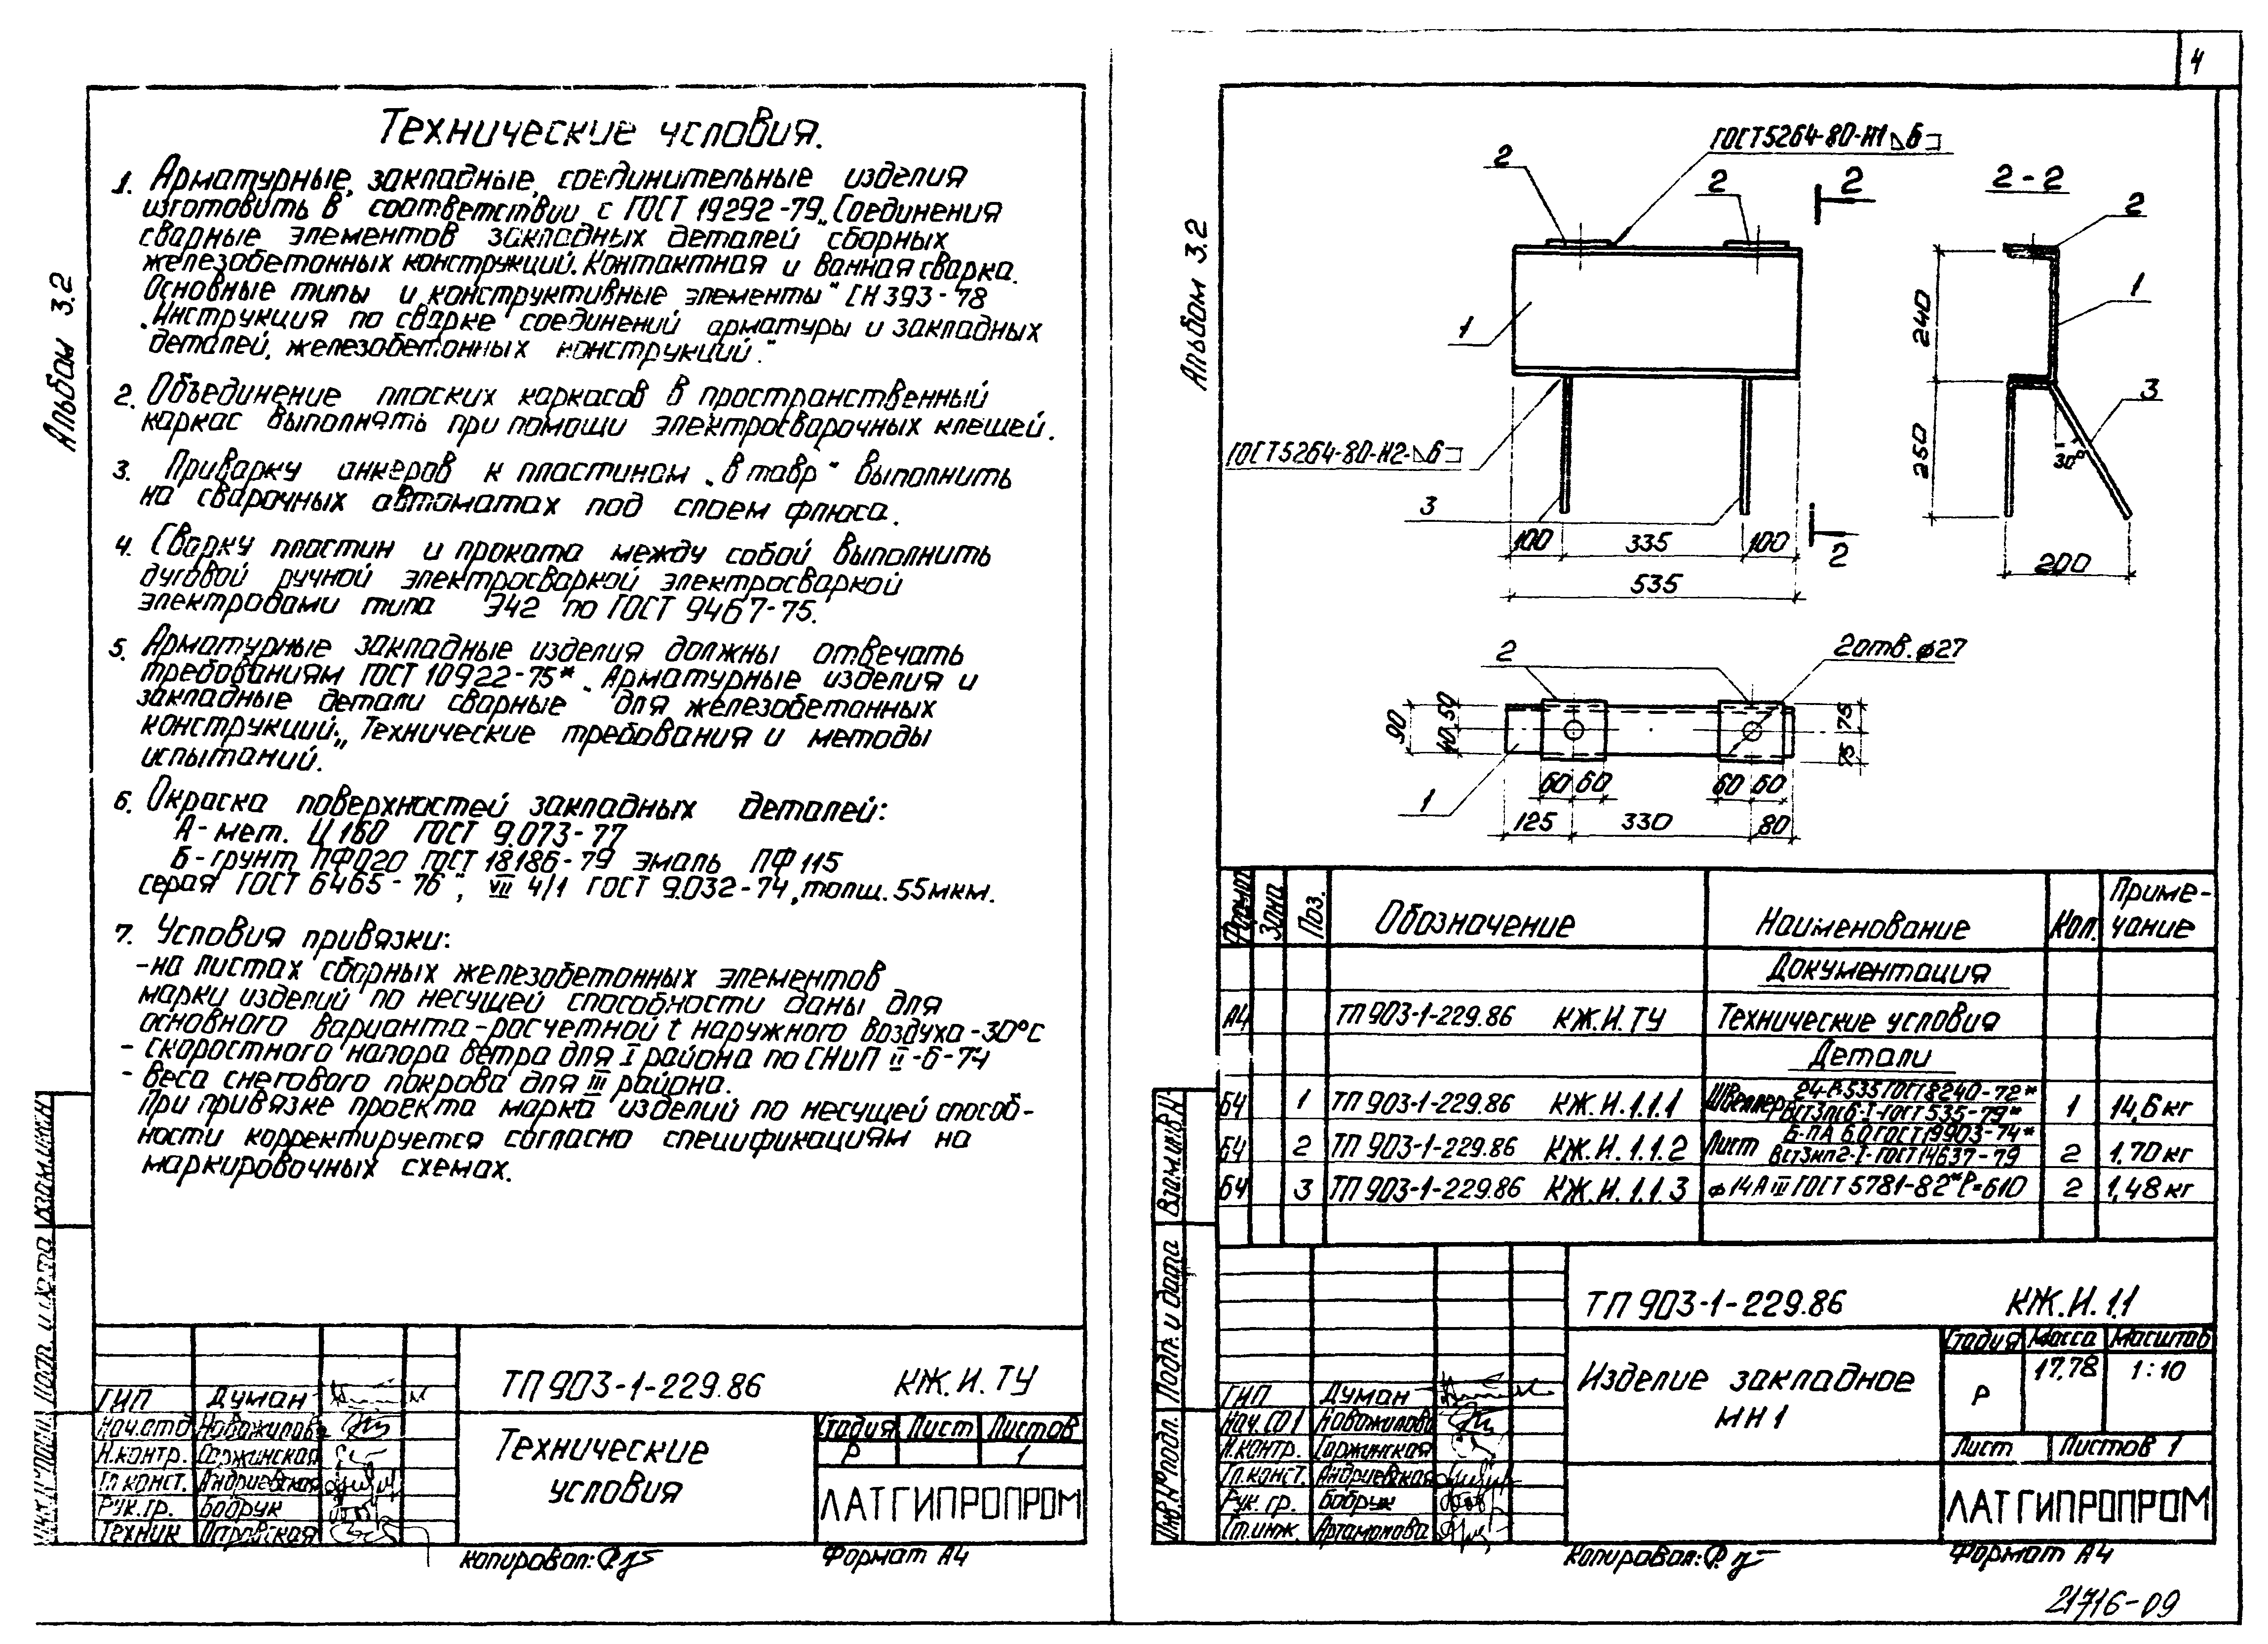 4
Альбом 3.2
Технические условия.
1. Арматурные, закладные, соединительные изделия
изготовить в соответствии с ГОСТ 19292-79 „Соединения
сварные элементов закладных деталей сборных
железобетонных конструкций. Контактная и ванная сварка.
Основные типы и конструктивные элементы" СН 393-78
„Инструкция по сварке соединений арматуры и закладных
деталей, железобетонных конструкций".
2. Объединение плоских каркасов в пространственный
каркас выполнять при помощи электросварочных клещей.
3. Приварку анкеров к пластинам „в тавр" выполнить
на сварочных автоматах под слоем флюса.
4. Сварку пластин и проката между собой выполнить
дуговой ручной электросваркой электросваркой
электродами типа Э42 по ГОСТ 9467-75.
5. Арматурные закладные изделия должны отвечать
требованиям ГОСТ 10922-75* „Арматурные изделия и
закладные детали сварные для железобетонных
конструкций." Технические требования и методы
испытаний.
6. Окраска поверхностей закладных деталей:
А- мет. Ц 160 ГОСТ 9.073-77
Б- грунт ПФ020 ГОСТ 18186-79 эмаль ПФ 115
серая ГОСТ 6465-76", VII 4/1 ГОСТ 9.032-74, толщ. 55мкм.
7. Условия привязки:
-на листах сборных железобетонных элементов
марки изделий по несущей способности даны для
основного варианта-расчетной t наружного воздуха -30°С
- скоростного напора ветра для I района по СНиП II-6-74
- веса снегового покрова для III района.
При привязке проекта марка изделий по несущей способ-
ности корректируется согласно спецификациям на
маркировочных схемах.
Взам.инв.N
Подп. и дата
ТП 903-1-229.86 КЖ.И.ТУ
ГИП Думан
Нач.отд Новожилова
Н.контр. Горжинская
Гл.конст. Андриевская
Рук.гр. Бобрук
Техник Островская
Технические
условия
Стадия Лист Листов
Р 1
ЛАТГИПРОПРОМ
Копировал:
Формат А4
Альбом 3.2
ГОСТ 5264-80-Н1 6
2
2
2
2-2
2
1
1
3
240
250
30°
200
ГОСТ 5264-80-Н2- 6
3
100 335 100
2
535
2
2отв. ф27
90
50
40
75
75
60 60
60 60
1
125 330 80
Формат Зона Поз. Обозначение Наименование Кол. Приме-
чание
Документация
А4 ТП 903-1-229.86 КЖ.И.ТУ Технические условия
Детали
Б4 1 ТП 903-1-229.86 КЖ.И.1.1.1 Швеллер 24-В-535 ГОСТ 8240-72* ВСт3пс6-I-ГОСТ 535-79* 1 14,6 кг
Б4 2 ТП 903-1-229.86 КЖ.И.1.1.2 Лист Б-ПА 6.0 ГОСТ 19903-74* ВСт3кп2-I-ГОСТ 14637-79 2 1.70 кг
Б4 3 ТП 903-1-229.86 КЖ.И.1.1.3 ф14АIII ГОСТ 5781-82* ℓ=610 2 1,48 кг
Взам.инв.N
Подп. и дата
Инв.N°подл.
ТП 903-1-229.86 КЖ.И.1.1
ГИП Думан
Нач.СО1 Новожилова
Н.контр. Горжинская
Гл.конст. Андриевская
Рук.гр. Бобрук
Ст.инж. Артамонова
Изделие закладное
МН1
Стадия Масса Масштаб
Р 17,78 1:10
Лист Листов 1
ЛАТГИПРОПРОМ
Копировал:
Формат А4
21716-09